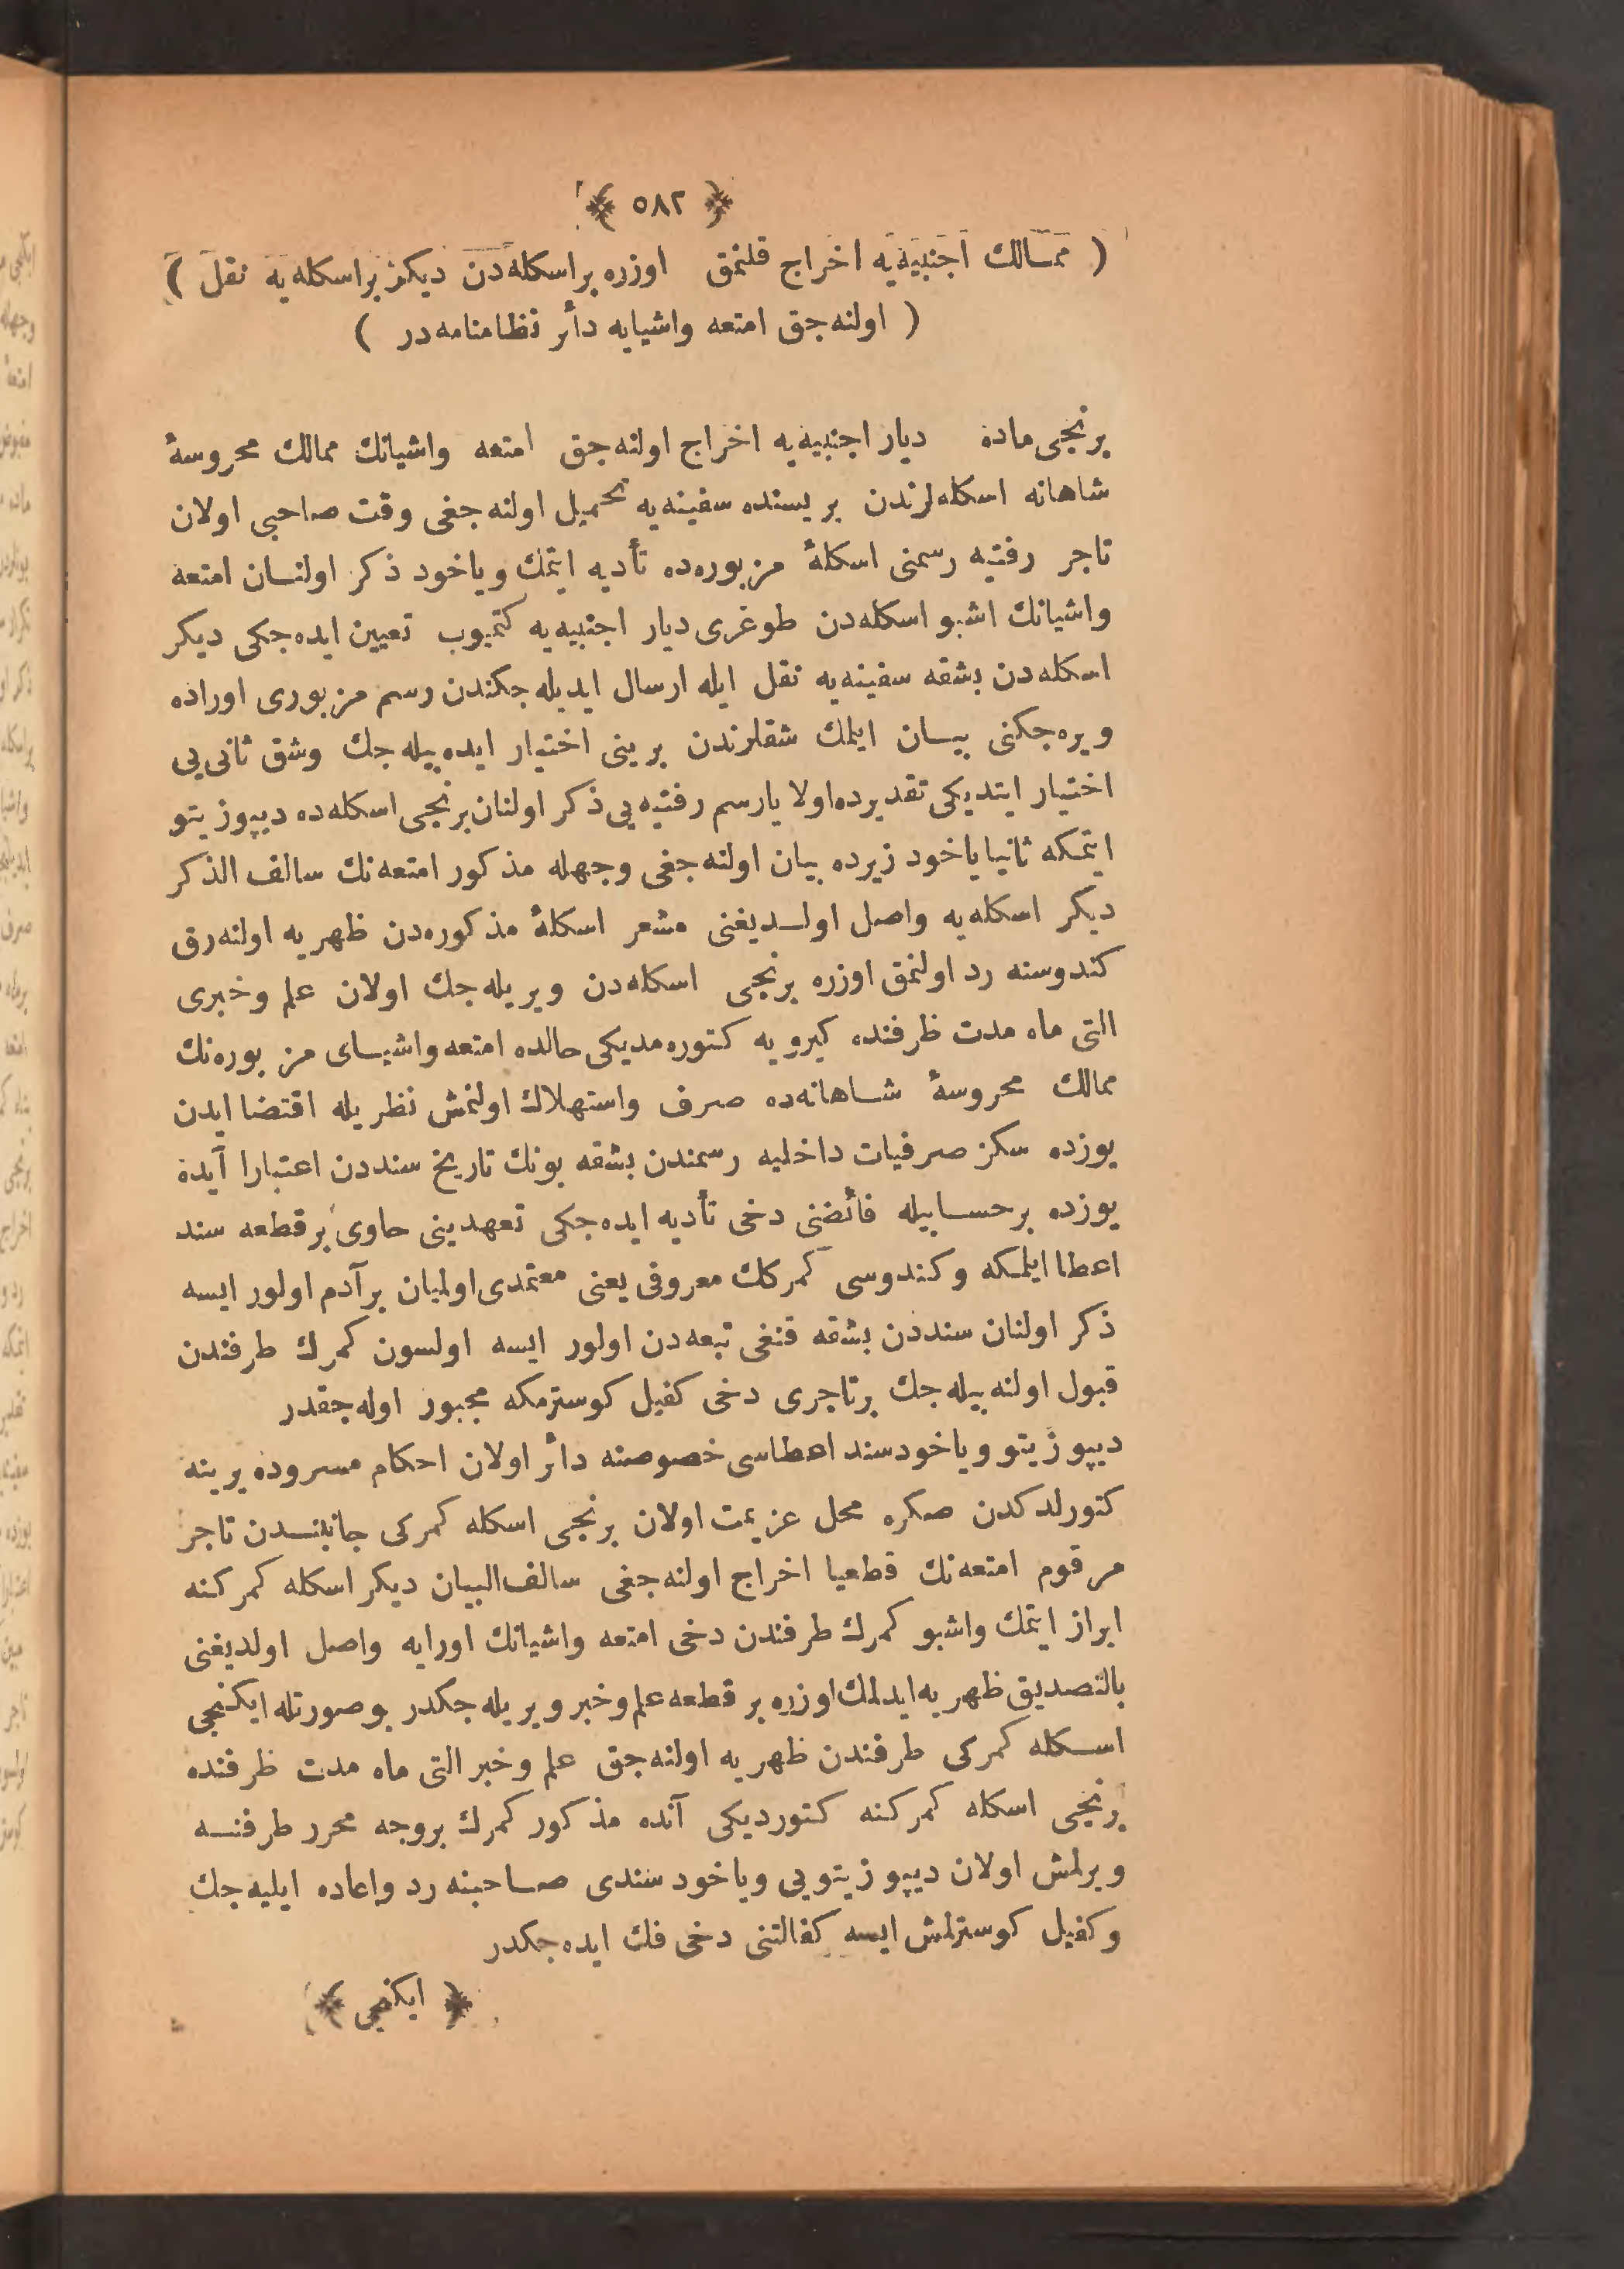 ﴿ ٥٨٢ ﴾
( ممالك اجنبیه‌یه اخراج قلنمق اوزره براسكله‌دن دیكر براسكله‌یه نقل )
( اولنه‌جق امتعه واشیایه دائر نظامنامه‌در )
برنجی ماده دیار اجنبیه‌یه اخراج اولنه‌جق امتعه واشیانك ممالك محروسۀ
شاهانه اسكله‌لرندن بریسنده سفینه‌یه تحمیل اولنه‌جغی وقت صاحبی اولان
تاجر رفتیه رسمنی اسكلۀ مزبوره‌ده تأدیه ایتمك ویاخود ذكر اولنان امتعه
واشیانك اشبو اسكله‌دن طوغری دیار اجنبیه‌یه كتمیوب تعیین ایده‌جكی دیكر
اسكله‌دن بشقه سفینه‌یه نقل ایله ارسال ایدیله‌جكندن رسم مزبوری اوراده
ویره‌جكنی بیان ایلمك شقلرندن برینی اختیار ایده‌بیله‌جك وشق ثانی‌یی
اختیار ایتدیكی تقدیرده اولا یارسم رفتیه‌یی ذكر اولنان برنجی اسكله‌ده دیپوزیتو
ایتمكه ثانیا یاخود زیرده بیان اولنه‌جغی وجهله مذكور امتعه‌نك سالف الذكر
دیكر اسكله‌یه واصل اولدیغنی مشعر اسكلۀ مذكوره‌دن ظهریه اولنه‌رق
كندوسنه رد اولنمق اوزره برنجی اسكله‌دن ویریله‌جك اولان علم وخبری
التی ماه مدت ظرفنده كیرویه كتوره‌مدیكی حالده امتعه واشیای مزبوره‌نك
ممالك محروسۀ شاهانه‌ده صرف واستهلاك اولنمش نظریله اقتضا ایدن
یوزده سكز صرفیات داخلیه رسمندن بشقه بونك تاریخ سنددن اعتبارا آیده
یوزده برحسابیله فائضنی دخی تأدیه ایده‌جكی تعهدینی حاوی برقطعه سند
اعطا ایلمكه وكندوسی كمركك معروفی یعنی معتمدی اولمیان برآدم اولور ایسه
ذكر اولنان سنددن بشقه قنغی تبعه‌دن اولور ایسه اولسون كمرك طرفندن
قبول اولنه‌بیله‌جك برتاجری دخی كفیل كوسترمكه مجبور اوله‌جقدر
دیپوزیتو ویاخود سند اعطاسی خصوصنه دائر اولان احكام مسروده یرینه
كتورلدكدن صكره محل عزیمت اولان برنجی اسكله كمركی جانبندن تاجر
مرقوم امتعه‌نك قطعیا اخراج اولنه‌جغی سالف‌البیان دیكر اسكله كمركنه
ابراز ایتمك واشبو كمرك طرفندن دخی امتعه واشیانك اورایه واصل اولدیغنی
بالتصدیق ظهریه ایدلمك اوزره برقطعه علم وخبر ویریله‌جكدر بوصورتله ایكنجی
اسكله كمركی طرفندن ظهریه اولنه‌جق علم وخبر التی ماه مدت ظرفنده
برنجی اسكله كمركنه كتوردیكی آنده مذكور كمرك بروجه محرر طرفنه
ویرلمش اولان دیپوزیتویی ویاخود سندی صاحبنه رد واعاده ایلیه‌جك
وكفیل كوسترلمش ایسه كفالتنی دخی فك ایده‌جكدر
﴿ ایكنجی ﴾